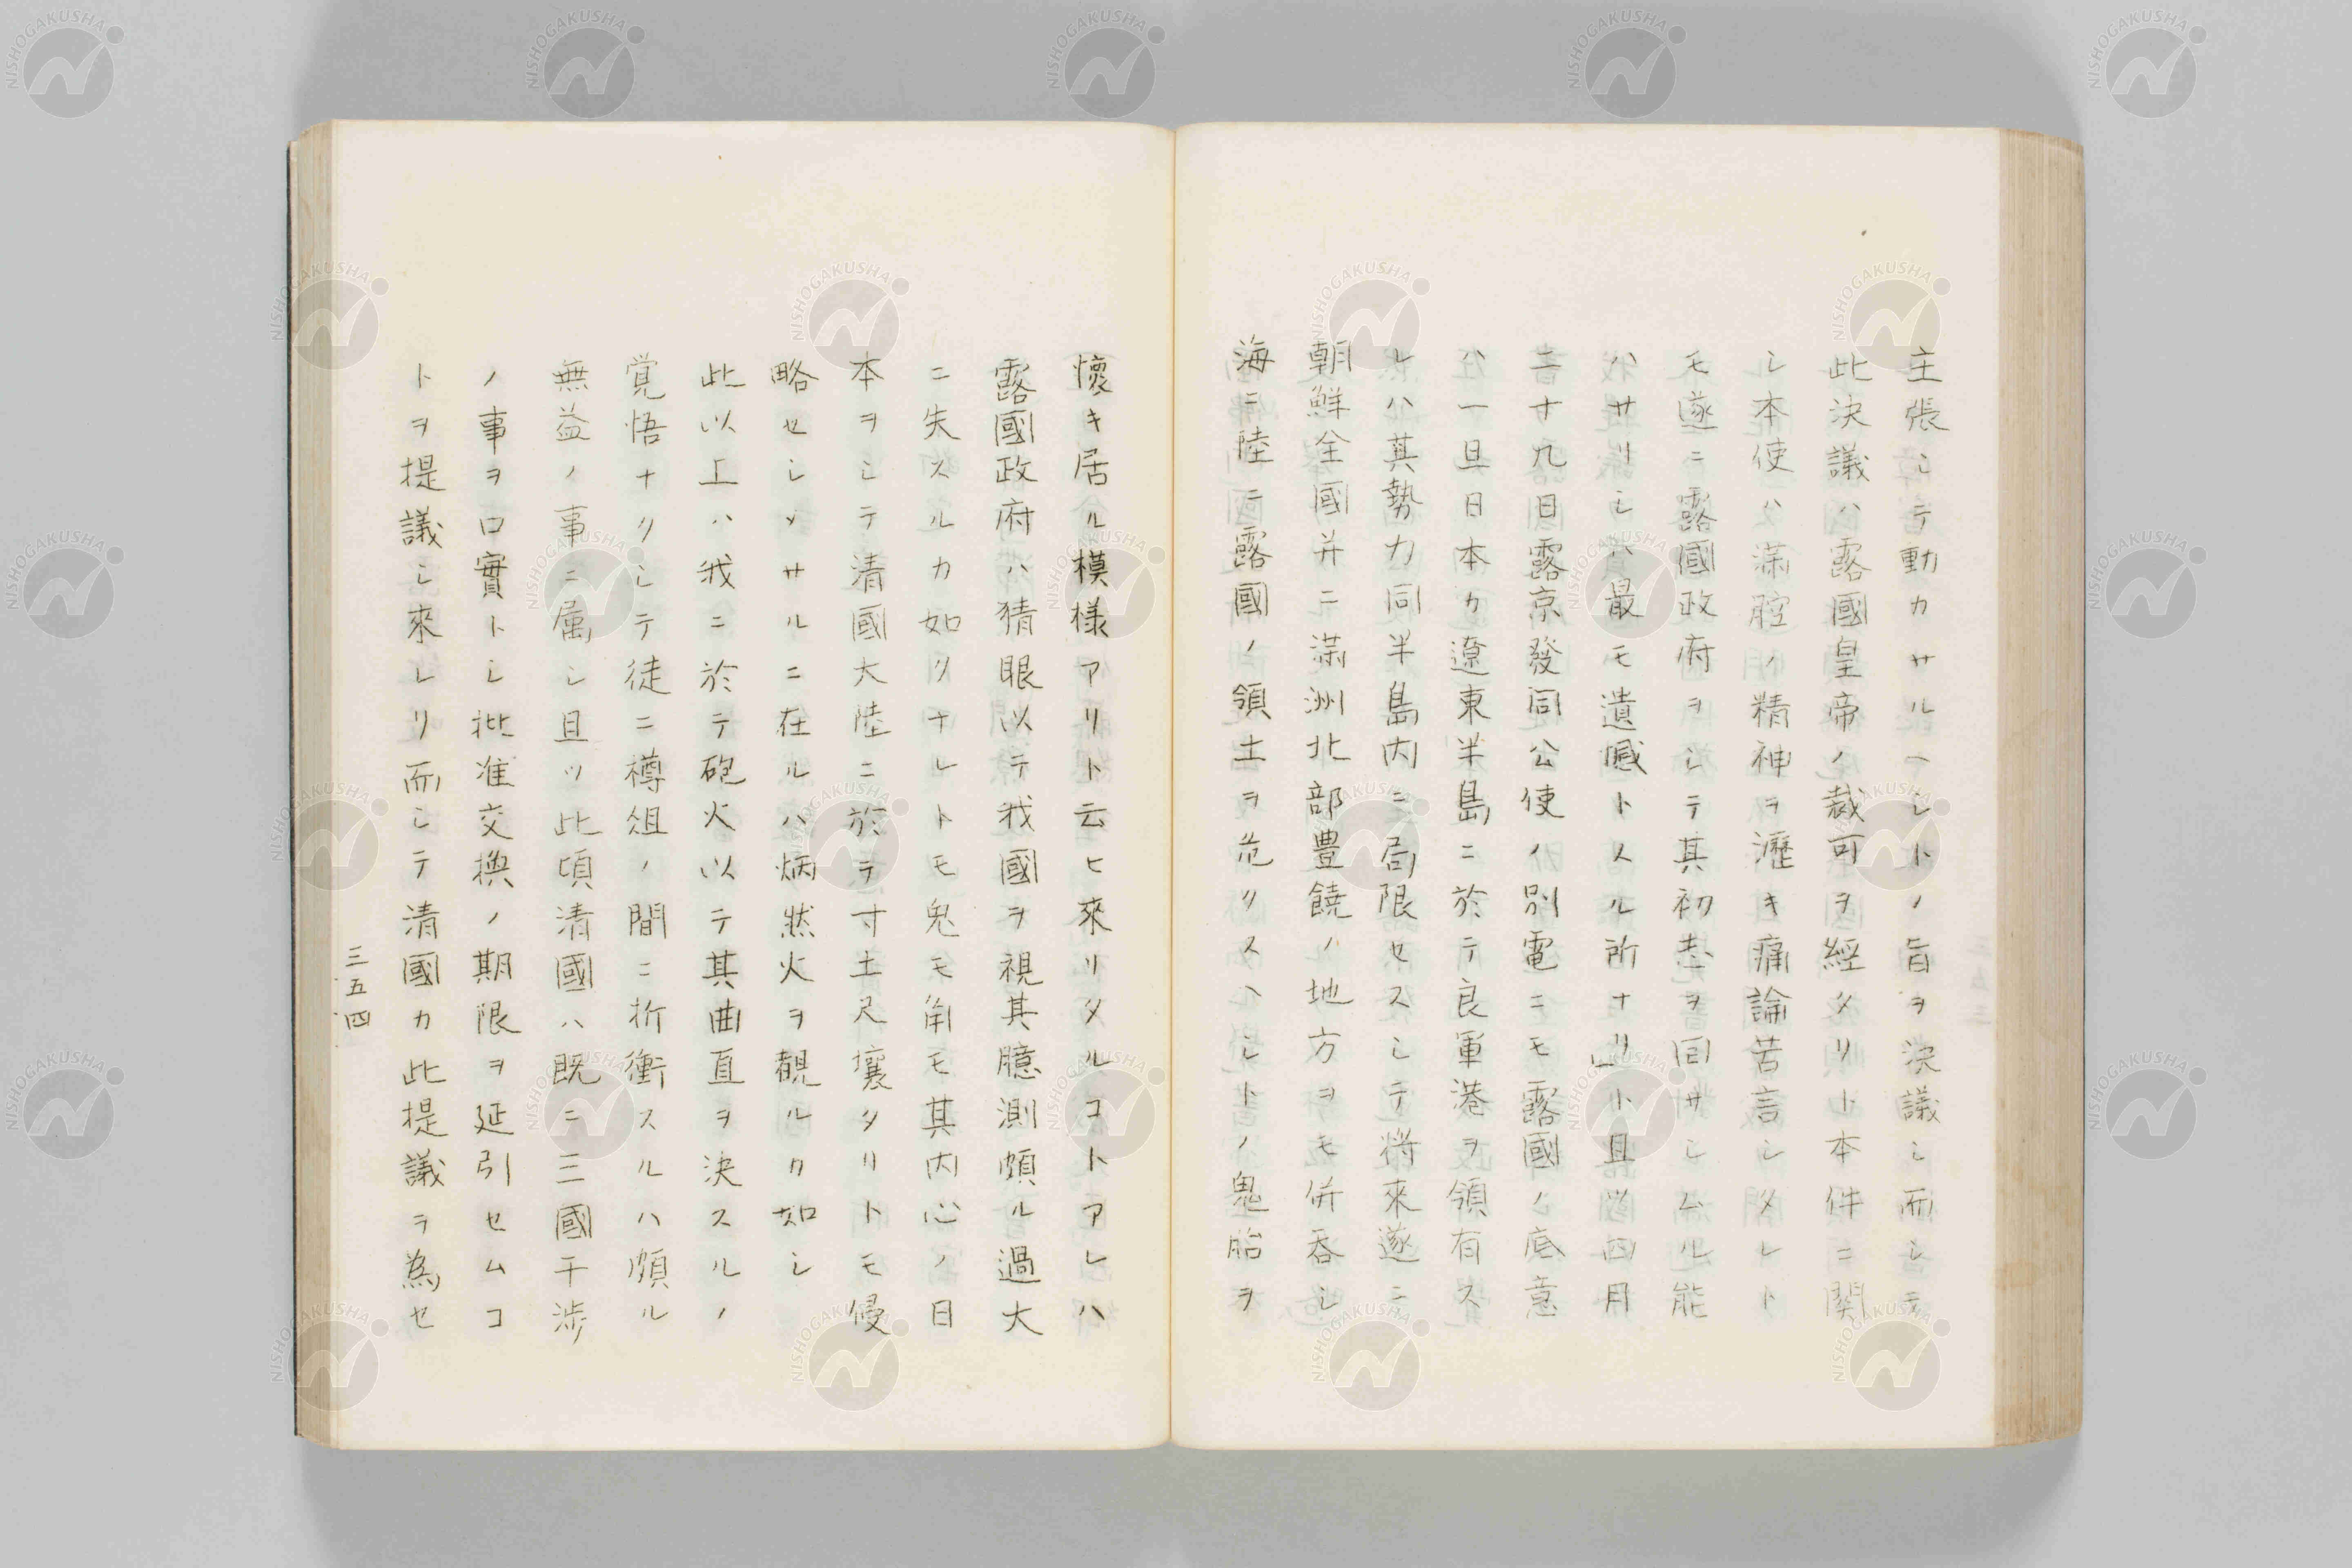 主張シテ動カサルヘシトノ旨ヲ決議シ而シテ
此決議ハ露國皇帝ノ裁可ヲ經タリト本件ニ関
シ本使ハ満腔ノ精神ヲ瀝キ痛論苦言シタレト
モ遂ニ露國政府ヲシテ其初志ヲ回サシムル能
ハサリシハ最モ遺憾トスル所ナリ」ト且ツ四月
二十九日露京發同公使ノ別電ニモ露國ノ底意
ハ一旦日本カ遼東半島ニ於テ良軍港ヲ領有ス
レハ其勢力同半島内ニ局限セスシテ將來遂ニ
朝鮮全國并ニ満洲北部豊饒ノ地方ヲモ併吞シ
海ニ陸ニ露國ノ領土ヲ危クスヘシトノ鬼胎ヲ
懐キ居ル模様アリト云ヒ來リタルコトアレハ
露國政府ハ猜眼以テ我國ヲ視其臆測頗ル過大
ニ失スルカ如クナレトモ鬼モ角モ其内心ノ日
本ヲシテ清國大陸ニ於テ寸土尺壤タリトモ侵
略セシメサルニ在ルハ炳然火ヲ観ルカ如シ
此以上ハ我ニ於テ砲火以テ其曲直ヲ決スルノ
覚悟ナクシテ徒ニ樽俎ノ間ニ折衝スルハ頗ル
無益ノ事ニ属シ且ツ此頃清國ハ既ニ三國干渉
ノ事ヲ口實トシ批准交換ノ期限ヲ延引セムコ
トヲ提議シ來レリ而シテ清國カ此提議ヲ為セ
三五四
NISHOGAKUSHA